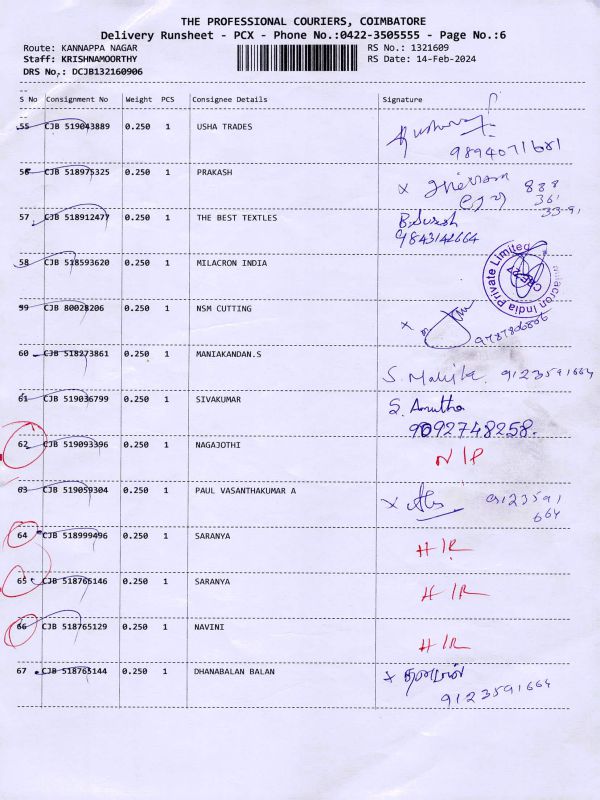 THE PROFESSIONAL COURIERS, COIMBATORE
Delivery Runsheet - PCX - Phone No.:0422-3505555 - Page No.:6
Route: KANNAPPA NAGAR
RS No.: 1321609
Staff: KRISHNAMOORTHY
RS Date: 14-Feb-2024
DRS No.: DCJB132160906
S No Consignment No Weight PCS Consignee Details Signature
55 CJB 519043889 0.250 1 USHA TRADES
9894071681
56 CJB 518975325 0.250 1 PRAKASH
X
57 CJB 518912477 0.250 1 THE BEST TEXTLES B. Suresh
9843142664
58 CJB 518593620 0.250 1 MILACRON INDIA
Milacron India Private Limited
59 CJB 80028206 0.250 1 NSM CUTTING X
60 CJB 518273861 0.250 1 MANIAKANDAN.S S. Malika. 9123591664
61 CJB 519036799 0.250 1 SIVAKUMAR S. Amutha
9092748258.
62 CJB 519093396 0.250 1 NAGAJOTHI N/P
63 CJB 519059304 0.250 1 PAUL VASANTHAKUMAR A X 9123591
664
64 CJB 518999496 0.250 1 SARANYA H/R
65 CJB 518765146 0.250 1 SARANYA H/R
66 CJB 518765129 0.250 1 NAVINI H/R
67 CJB 518765144 0.250 1 DHANABALAN BALAN X
9123591664